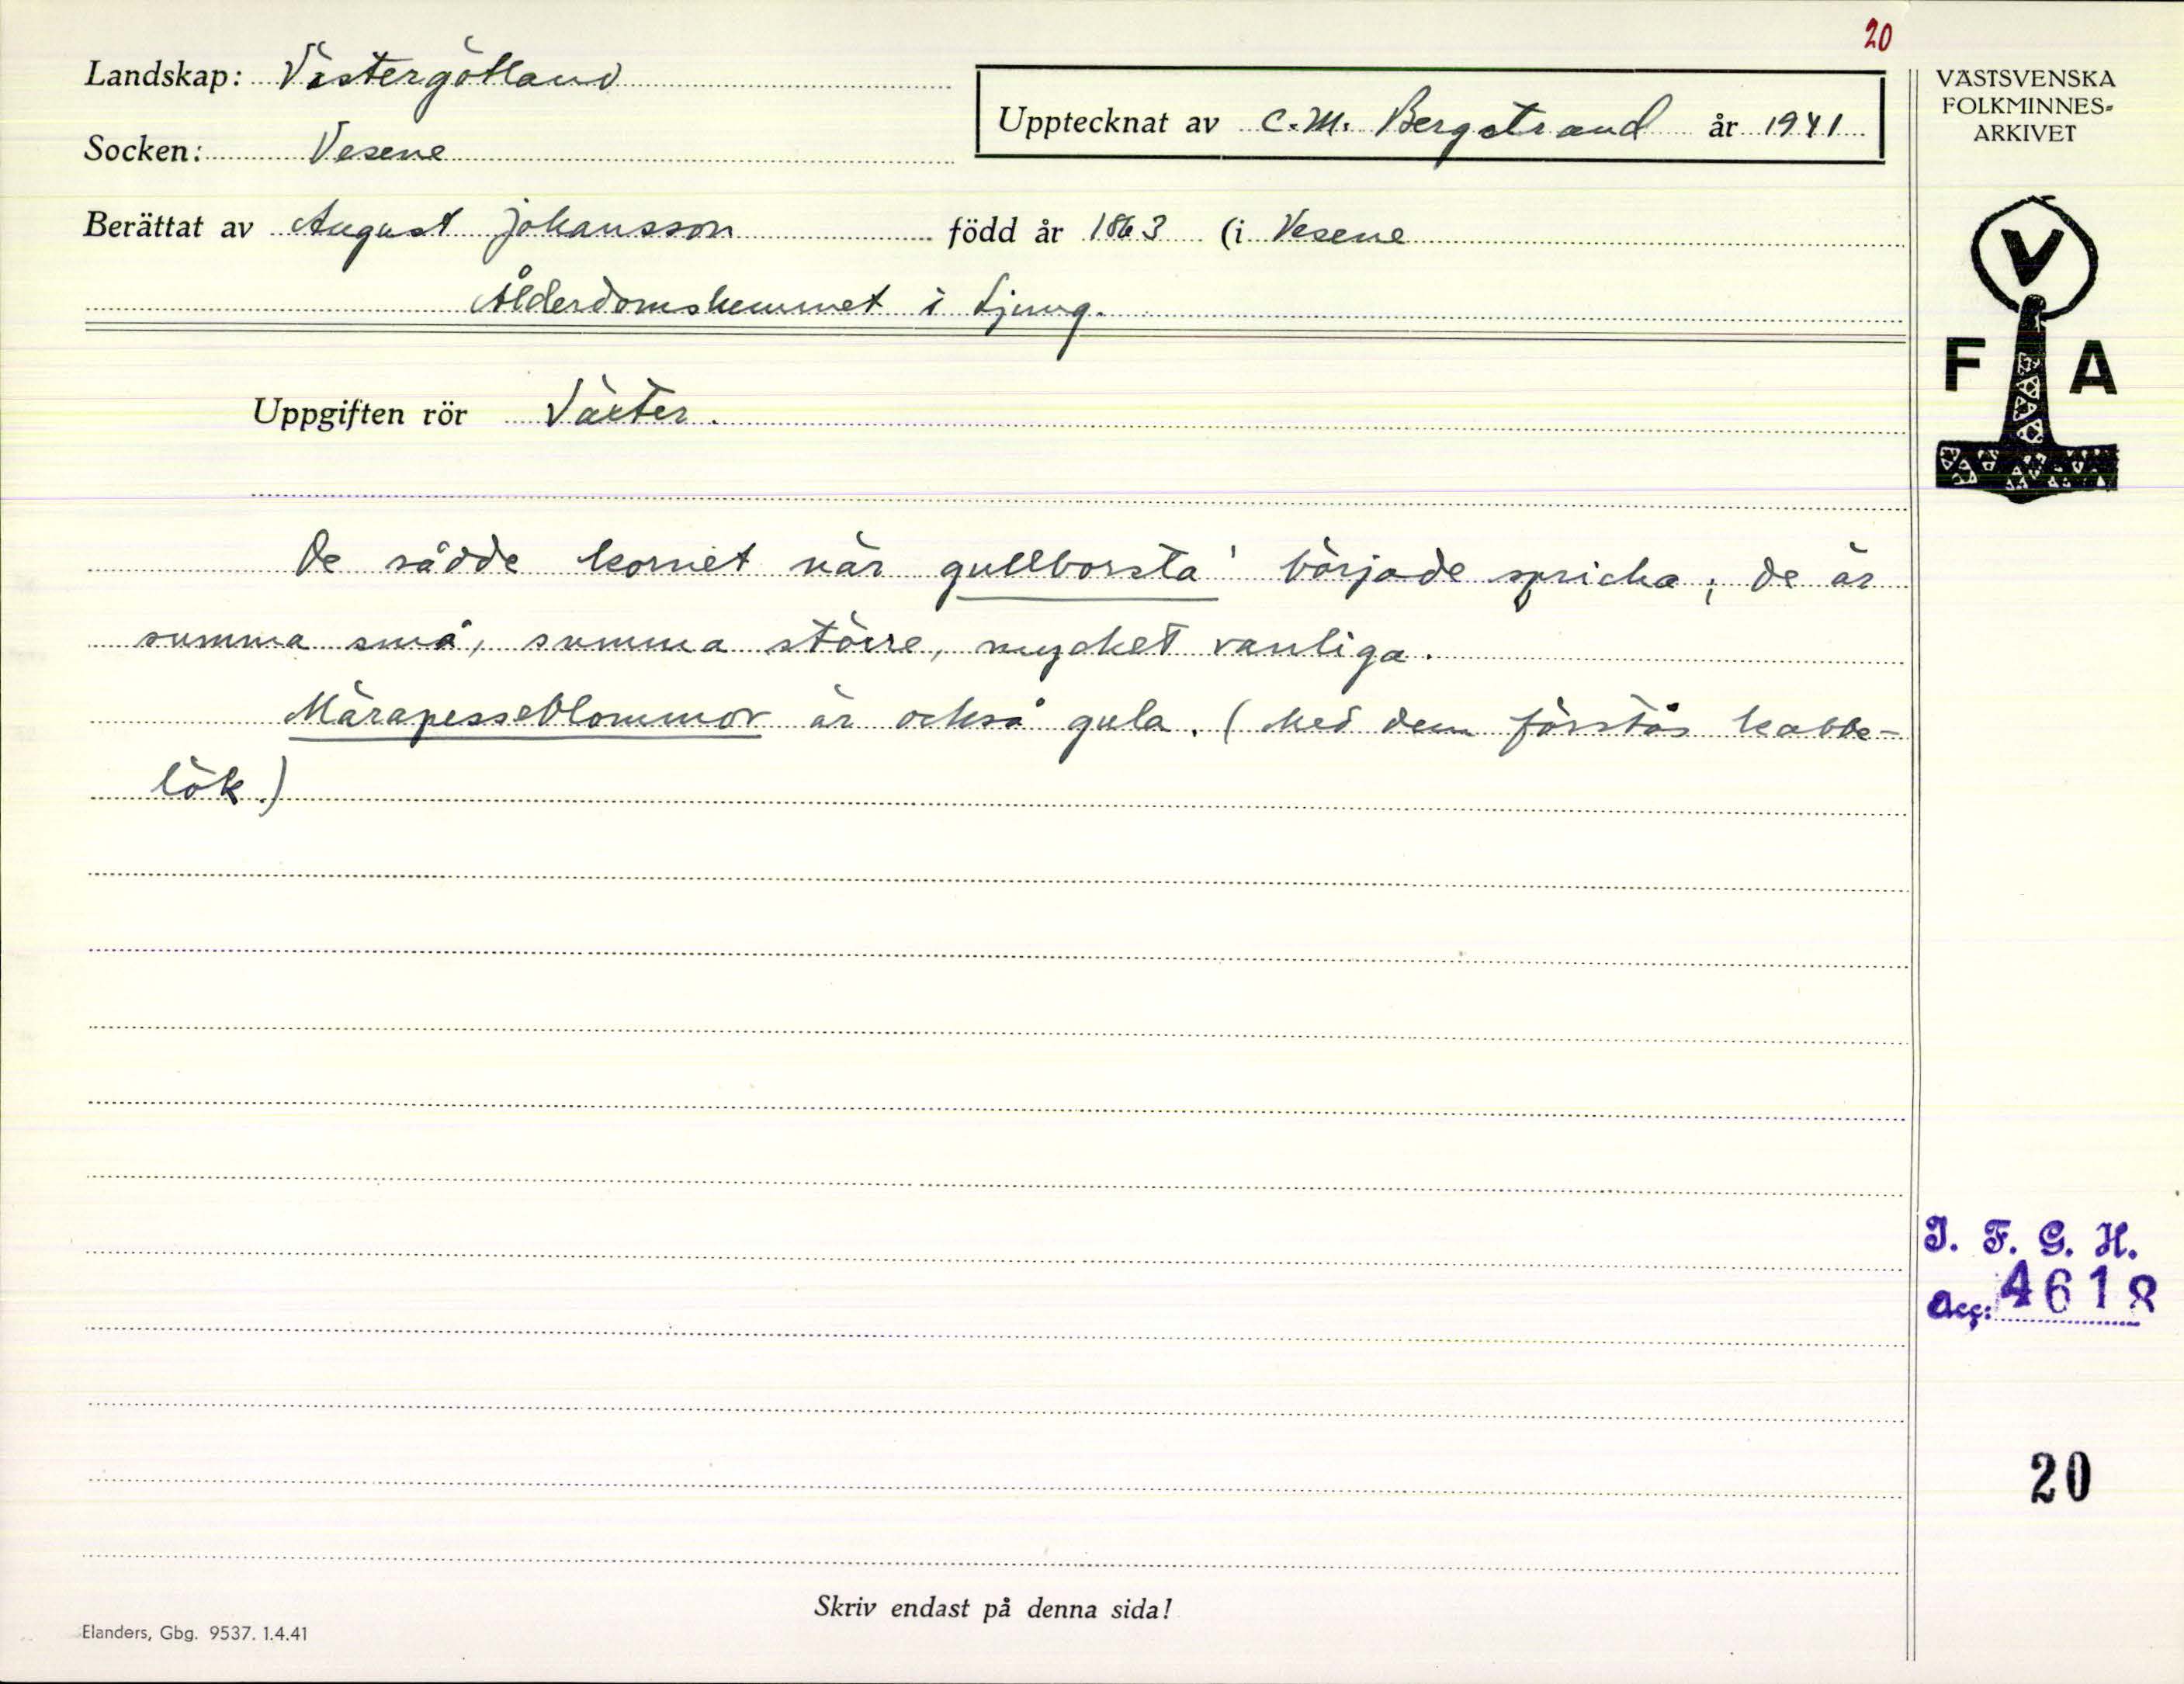 20
Landskap: Västergötland
Socken: Vesene
Upptecknat av C. M. Bergstrand år 1941
Berättat av August Johansson född år 1863 (i Vesene
Ålderdomshemmet i Ljung.
Uppgiften rör Växter.
De sådde kornet när gullborsta' började spricka; de är
summa små, summa större, mycket vanliga.
Märapesseblommor är också gula. (Med dem förstås kabbe-
lök.)
Skriv endast på denna sida!
Elanders, Gbg. 9537. 1.4.41
VÄSTSVENSKA
FOLKMINNES-
ARKIVET
V
F A
I. F. G. H.
Acc: 4618
20